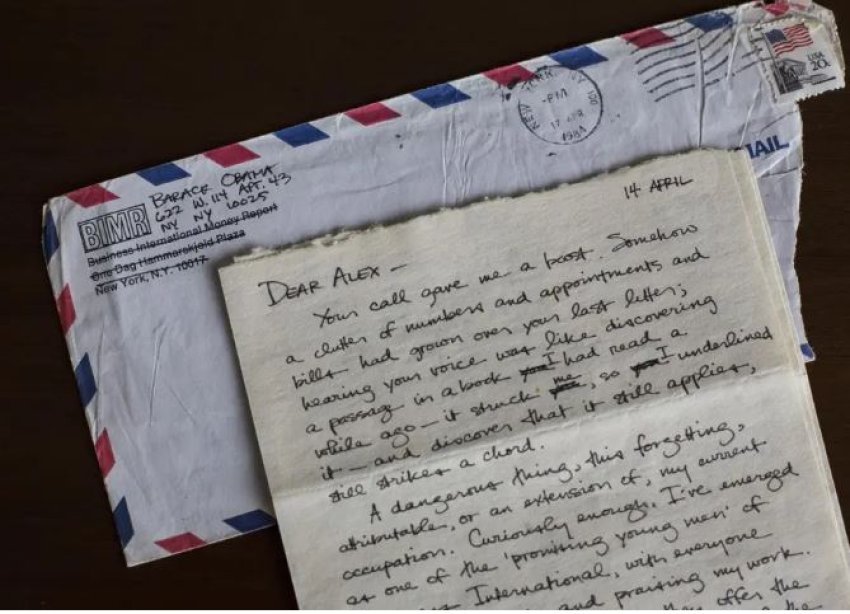 NEW YORK, NY 100
-PM
17 APR
1984
USA
20c
MAIL
BARACK OBAMA
622 W. 114 APT. 43
NY NY 10025
BIMR
Business International Money Report
One Dag Hammarskjold Plaza
New York, N.Y. 10017
14 APRIL
DEAR ALEX —
Your call gave me a boost. Somehow
a clutter of numbers and appointments and
bills had grown over your last letter;
hearing your voice was like discovering
a passage in a book you I had read a
while ago — it struck you me, so you I underlined
it — and discover that it still applies,
still strikes a chord.
A dangerous thing, this forgetting,
attributable, or an extension of, my current
occupation. Curiously enough, I've emerged
as one of the 'promising young men' of
International, with everyone
and praising my work.
offer the
the